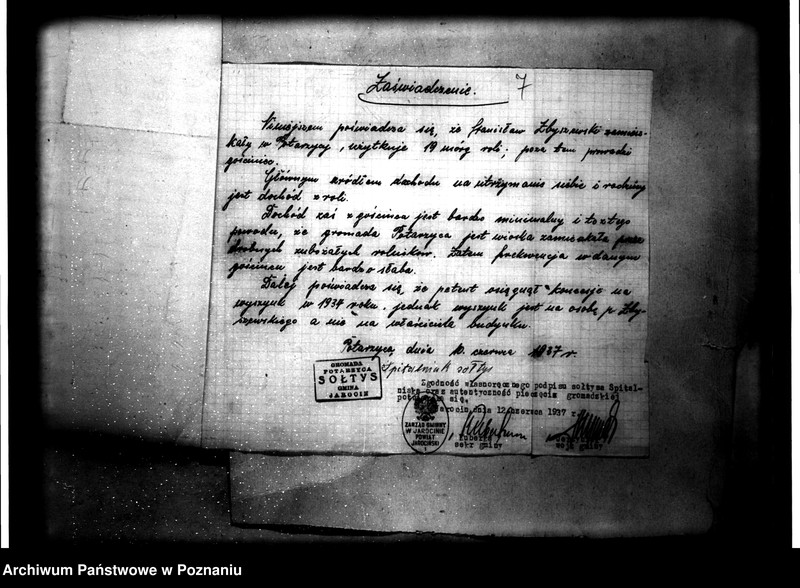 Zaświadczenie.
7
Niniejszem poświadcza się, że Stanisław Zbyszewski zamiesz-
kały w Potarzycy, użytkuje 19 mórg roli; poza tem prowadzi
gościniec.
Głównym źródłem dochodu na utrzymanie siebie i rodziny
jest dochód z roli.
Dochód zaś z gościńca jest bardzo minimalny i to z tego
powodu, że gromada Potarzyca jest wioską zamieszkałą przez
drobnych zubożałych rolników. Zatem frekwencja w danym
gościńcu jest bardzo słaba.
Dalej poświadcza się, że petent osiągnął koncesję na
wyszynk w 1934 roku, jednak wyszynk jest na osobę p. Zby-
szewskiego a nie na właściciela budynku.
Potarzyca, dnia 10. czerwca 1937 r.
Szpitalniak sołtys
GROMADA
POTARZYCA
SOŁTYS
GMINA
JAROCIN
Zgodność własnoręcznego podpisu sołtysa Szpital-
niaka oraz autentyczność pieczęcie gromadzkiej
się.
Jarocin, dnia 12 czerwca 1937 r.
ZARZĄD GMINNY
W JAROCINIE
POWIAT
JAROCIŃSKI
1
sekr gminy
wójt gminy
Archiwum Państwowe w Poznaniu